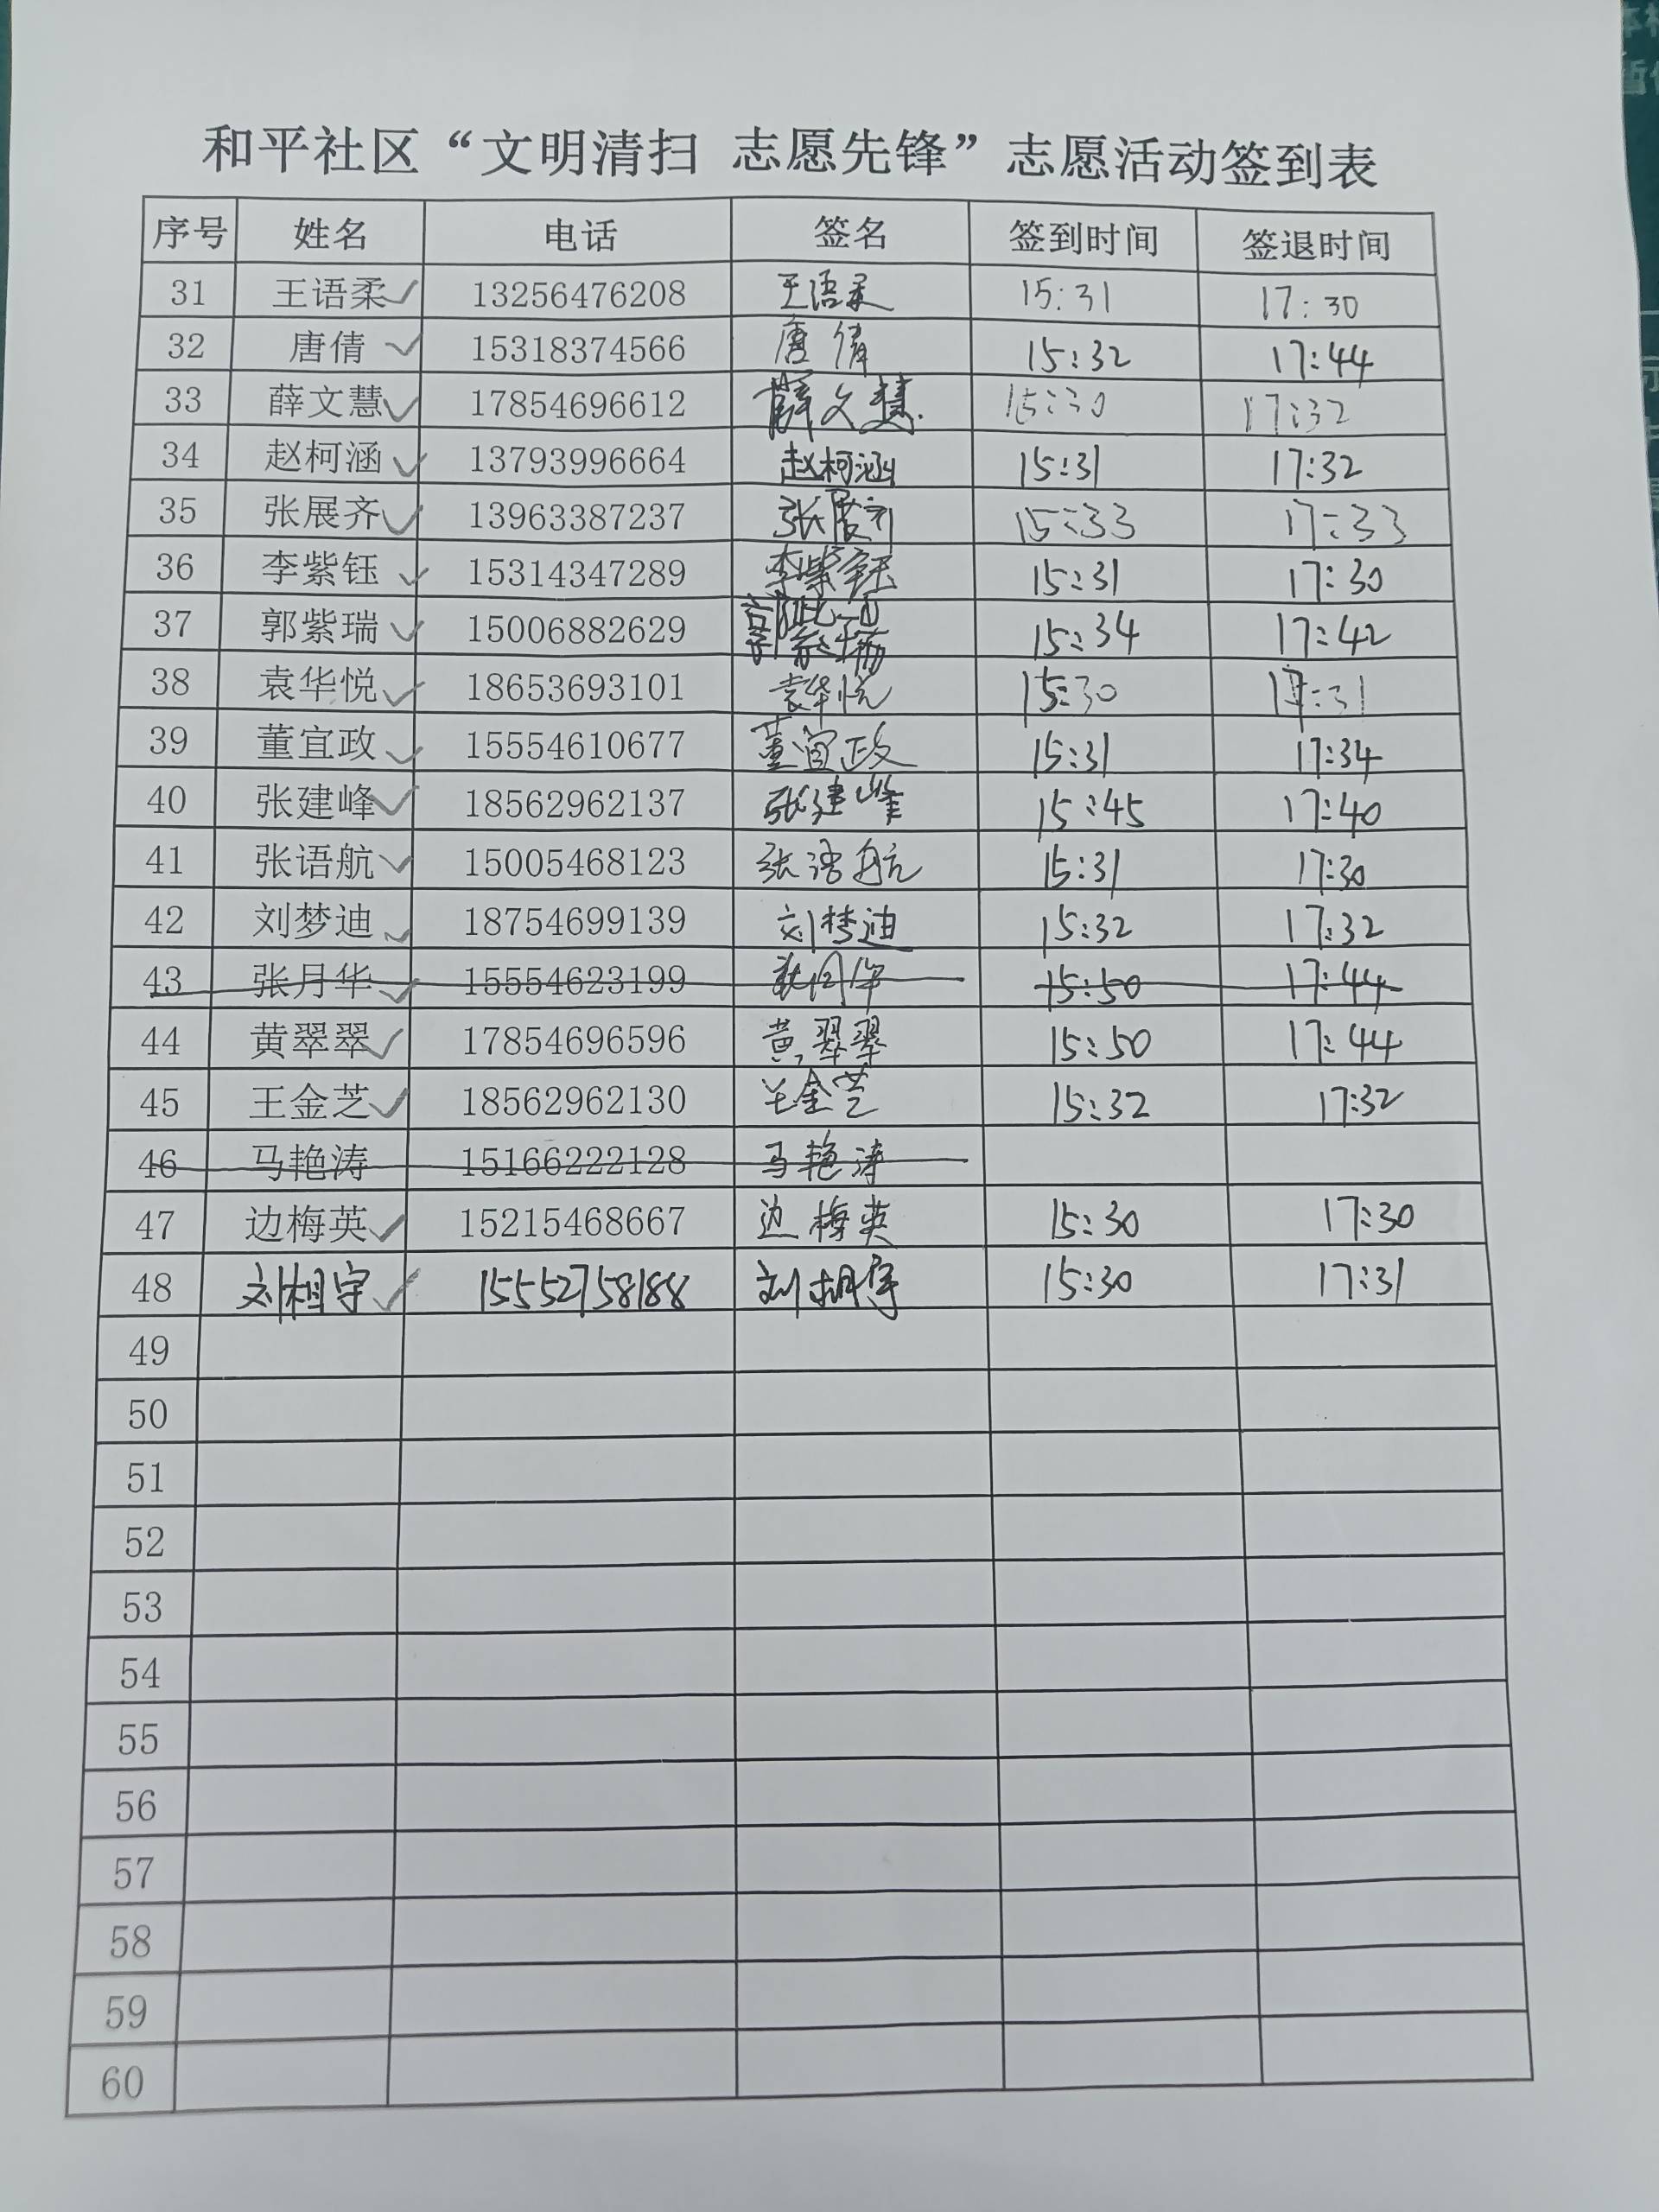 和平社区“文明清扫 志愿先锋”志愿活动签到表
序号 姓名 电话 签名 签到时间 签退时间
31 王语柔 13256476208 王语柔 15:31 17:30
32 唐倩 15318374566 唐倩 15:32 17:44
33 薛文慧 17854696612 薛文慧 15:30 17:32
34 赵柯涵 13793996664 赵柯涵 15:31 17:32
35 张展齐 13963387237 张展齐 15:33 17:33
36 李紫钰 15314347289 李紫钰 15:31 17:30
37 郭紫瑞 15006882629 郭紫瑞 15:34 17:42
38 袁华悦 18653693101 袁华悦 15:30 17:31
39 董宜政 15554610677 董宜政 15:31 17:34
40 张建峰 18562962137 张建峰 15:45 17:40
41 张语航 15005468123 张语航 15:31 17:30
42 刘梦迪 18754699139 刘梦迪 15:32 17:32
43 张月华 15554623199 张月华 15:50 17:44
44 黄翠翠 17854696596 黄翠翠 15:50 17:44
45 王金芝 18562962130 王金芝 15:32 17:32
46 马艳涛 15166222128 马艳涛
47 边梅英 15215468667 边梅英 15:30 17:30
48 刘相宇 15552758188 刘相宇 15:30 17:31
49
50
51
52
53
54
55
56
57
58
59
60